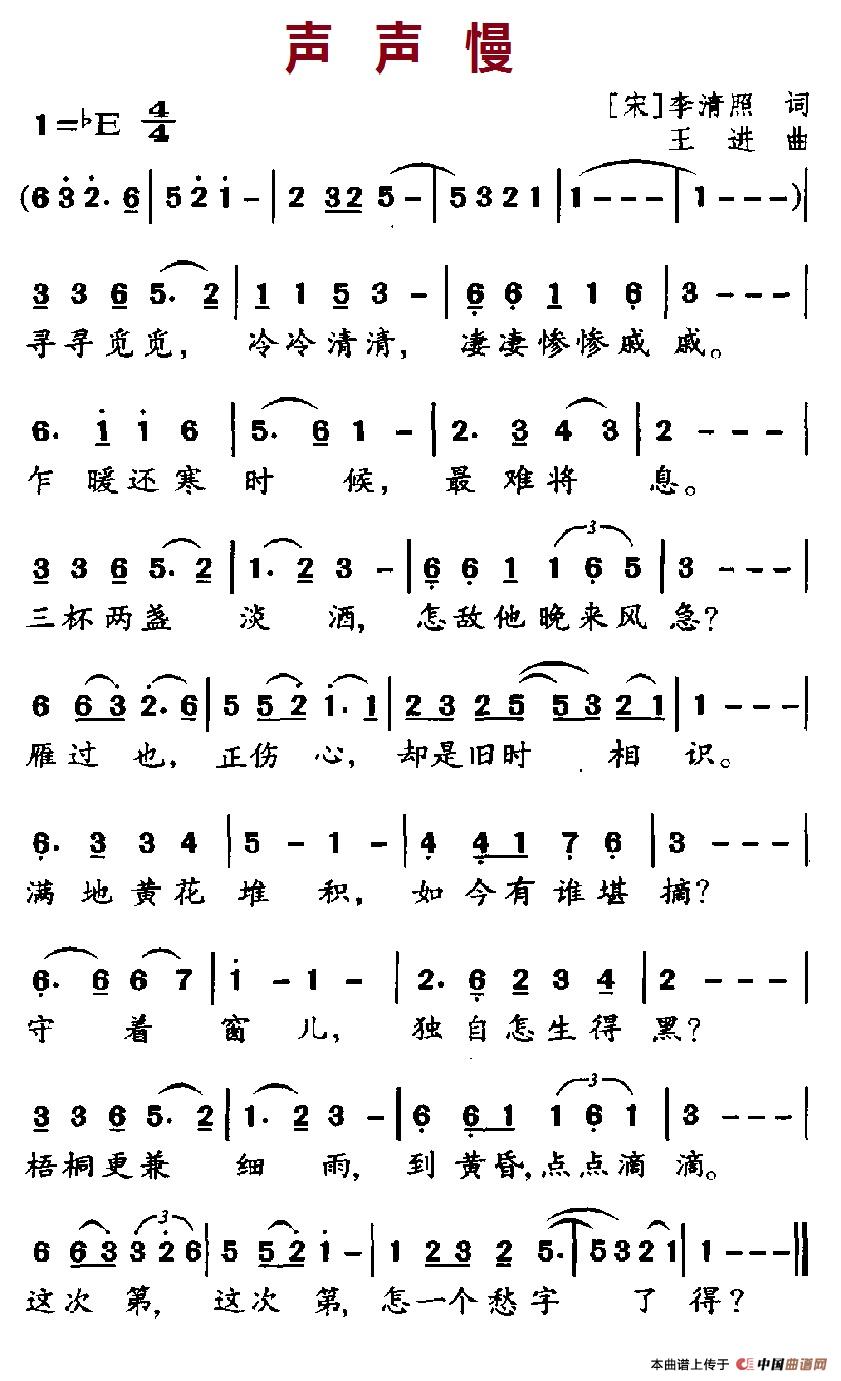 声声慢
1=♭E 4/4
[宋]李清照 词
王 进 曲
(6 3 2. 6 | 5 2 1 - | 2 32 5 - | 5 3 2 1 | 1 - - - | 1 - - -)|
3 3 6 5. 2 | 1 1 5 3 - | 6 6 1 1 6 | 3 - - - |
寻寻觅觅, 冷冷清清, 凄凄惨惨戚戚。
6. 1 1 6 | 5. 6 1 - | 2. 3 4 3 | 2 - - - |
乍暖还寒时候, 最难将息。
3 3 6 5. 2 | 1. 2 3 - | 6 6 1 1 6 5 | 3 - - - |
3
三杯两盏淡酒, 怎敌他晚来风急?
6 63 2. 6 | 5 52 1. 1 | 23 25 53 21 | 1 - - - |
雁过也, 正伤心, 却是旧时相识。
6. 3 3 4 | 5 - 1 - | 4 41 7 6 | 3 - - - |
满地黄花堆积, 如今有谁堪摘?
6. 6 6 7 | 1 - 1 - | 2. 6 2 3 4 | 2 - - - |
守着窗儿, 独自怎生得黑?
3 3 6 5. 2 | 1. 2 3 - | 6 61 1 6 1 | 3 - - - |
3
梧桐更兼细雨, 到黄昏,点点滴滴。
6 63 3 2 6 | 5 52 1 - | 1 23 2 5. | 5 3 2 1 | 1 - - - ||
3
这次第, 这次第, 怎一个愁字了得?
本曲谱上传于 中国曲谱网